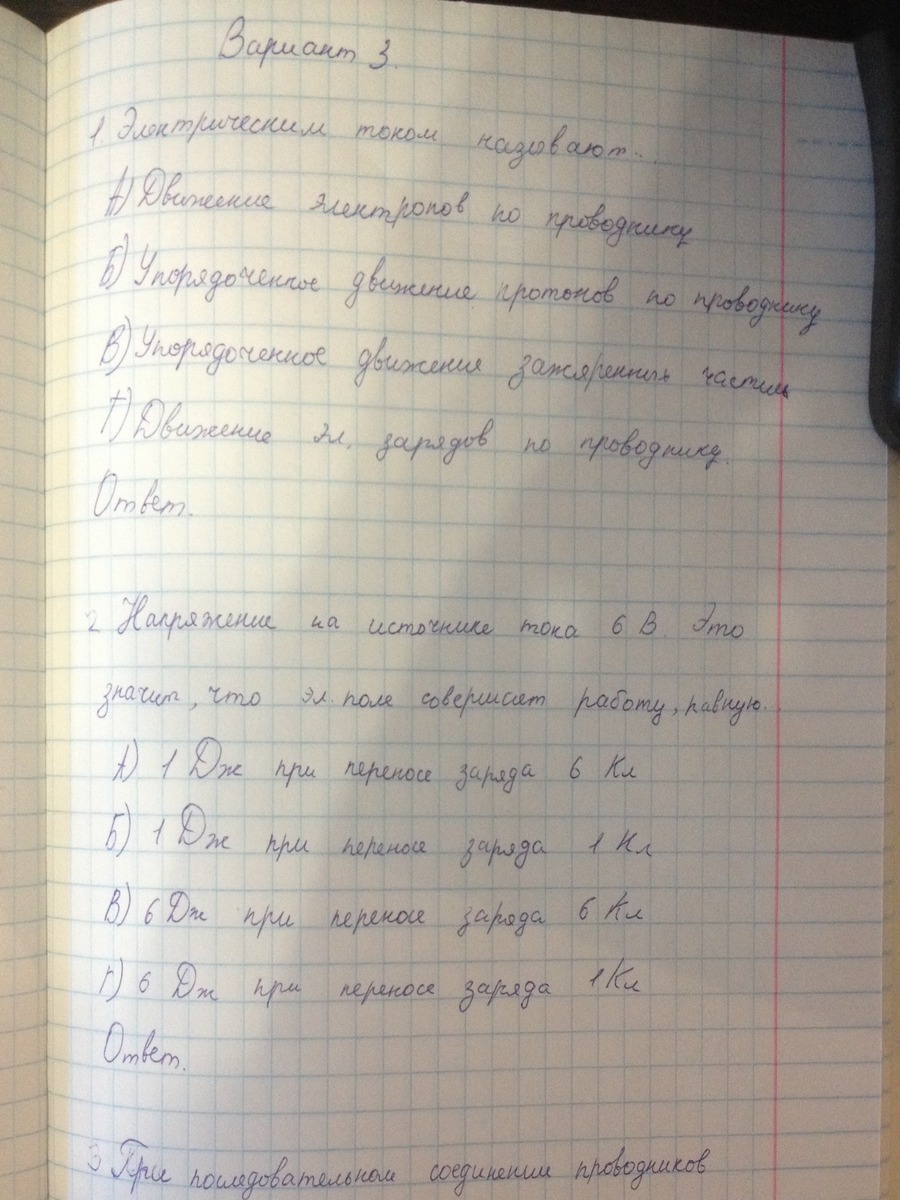 Вариант 3.
1. Электрическим током называют...
А) Движение электронов по проводнику
Б) Упорядоченное движение протонов по проводнику
В) Упорядоченное движение зажяренных частиц
Г) Движение эл. зарядов по проводнику.
Ответ.
2 Напряжение на источнике тока 6 В. Это
значит, что эл. поле совершает работу, равную..
А) 1 Дж при переносе заряда 6 Кл
Б) 1 Дж при переносе заряда 1 Кл
В) 6 Дж при переносе заряда 6 Кл
Г) 6 Дж при переносе заряда 1 Кл
Ответ.
3 При последовательном соединении проводников